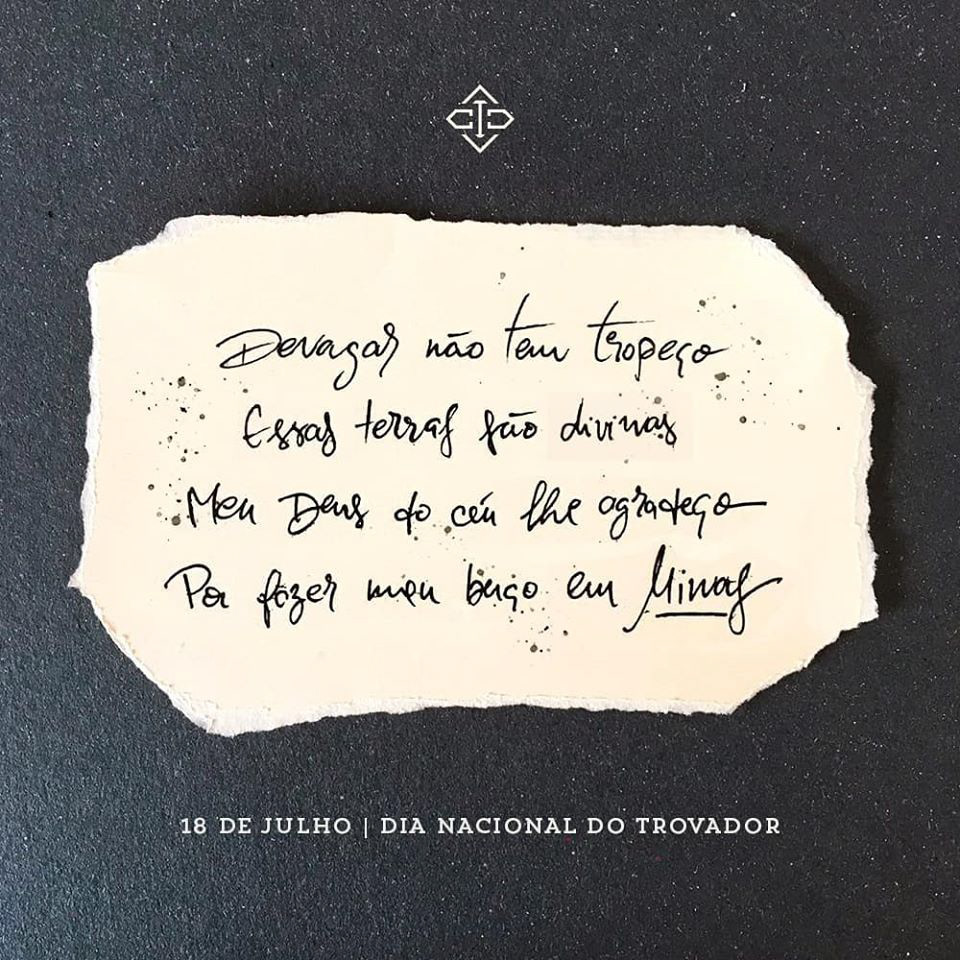 Devagar não tem tropeço
Essas terras são divinas
Meu Deus do céu lhe agradeço
Por fazer meu berço em Minas
18 DE JULHO | DIA NACIONAL DO TROVADOR